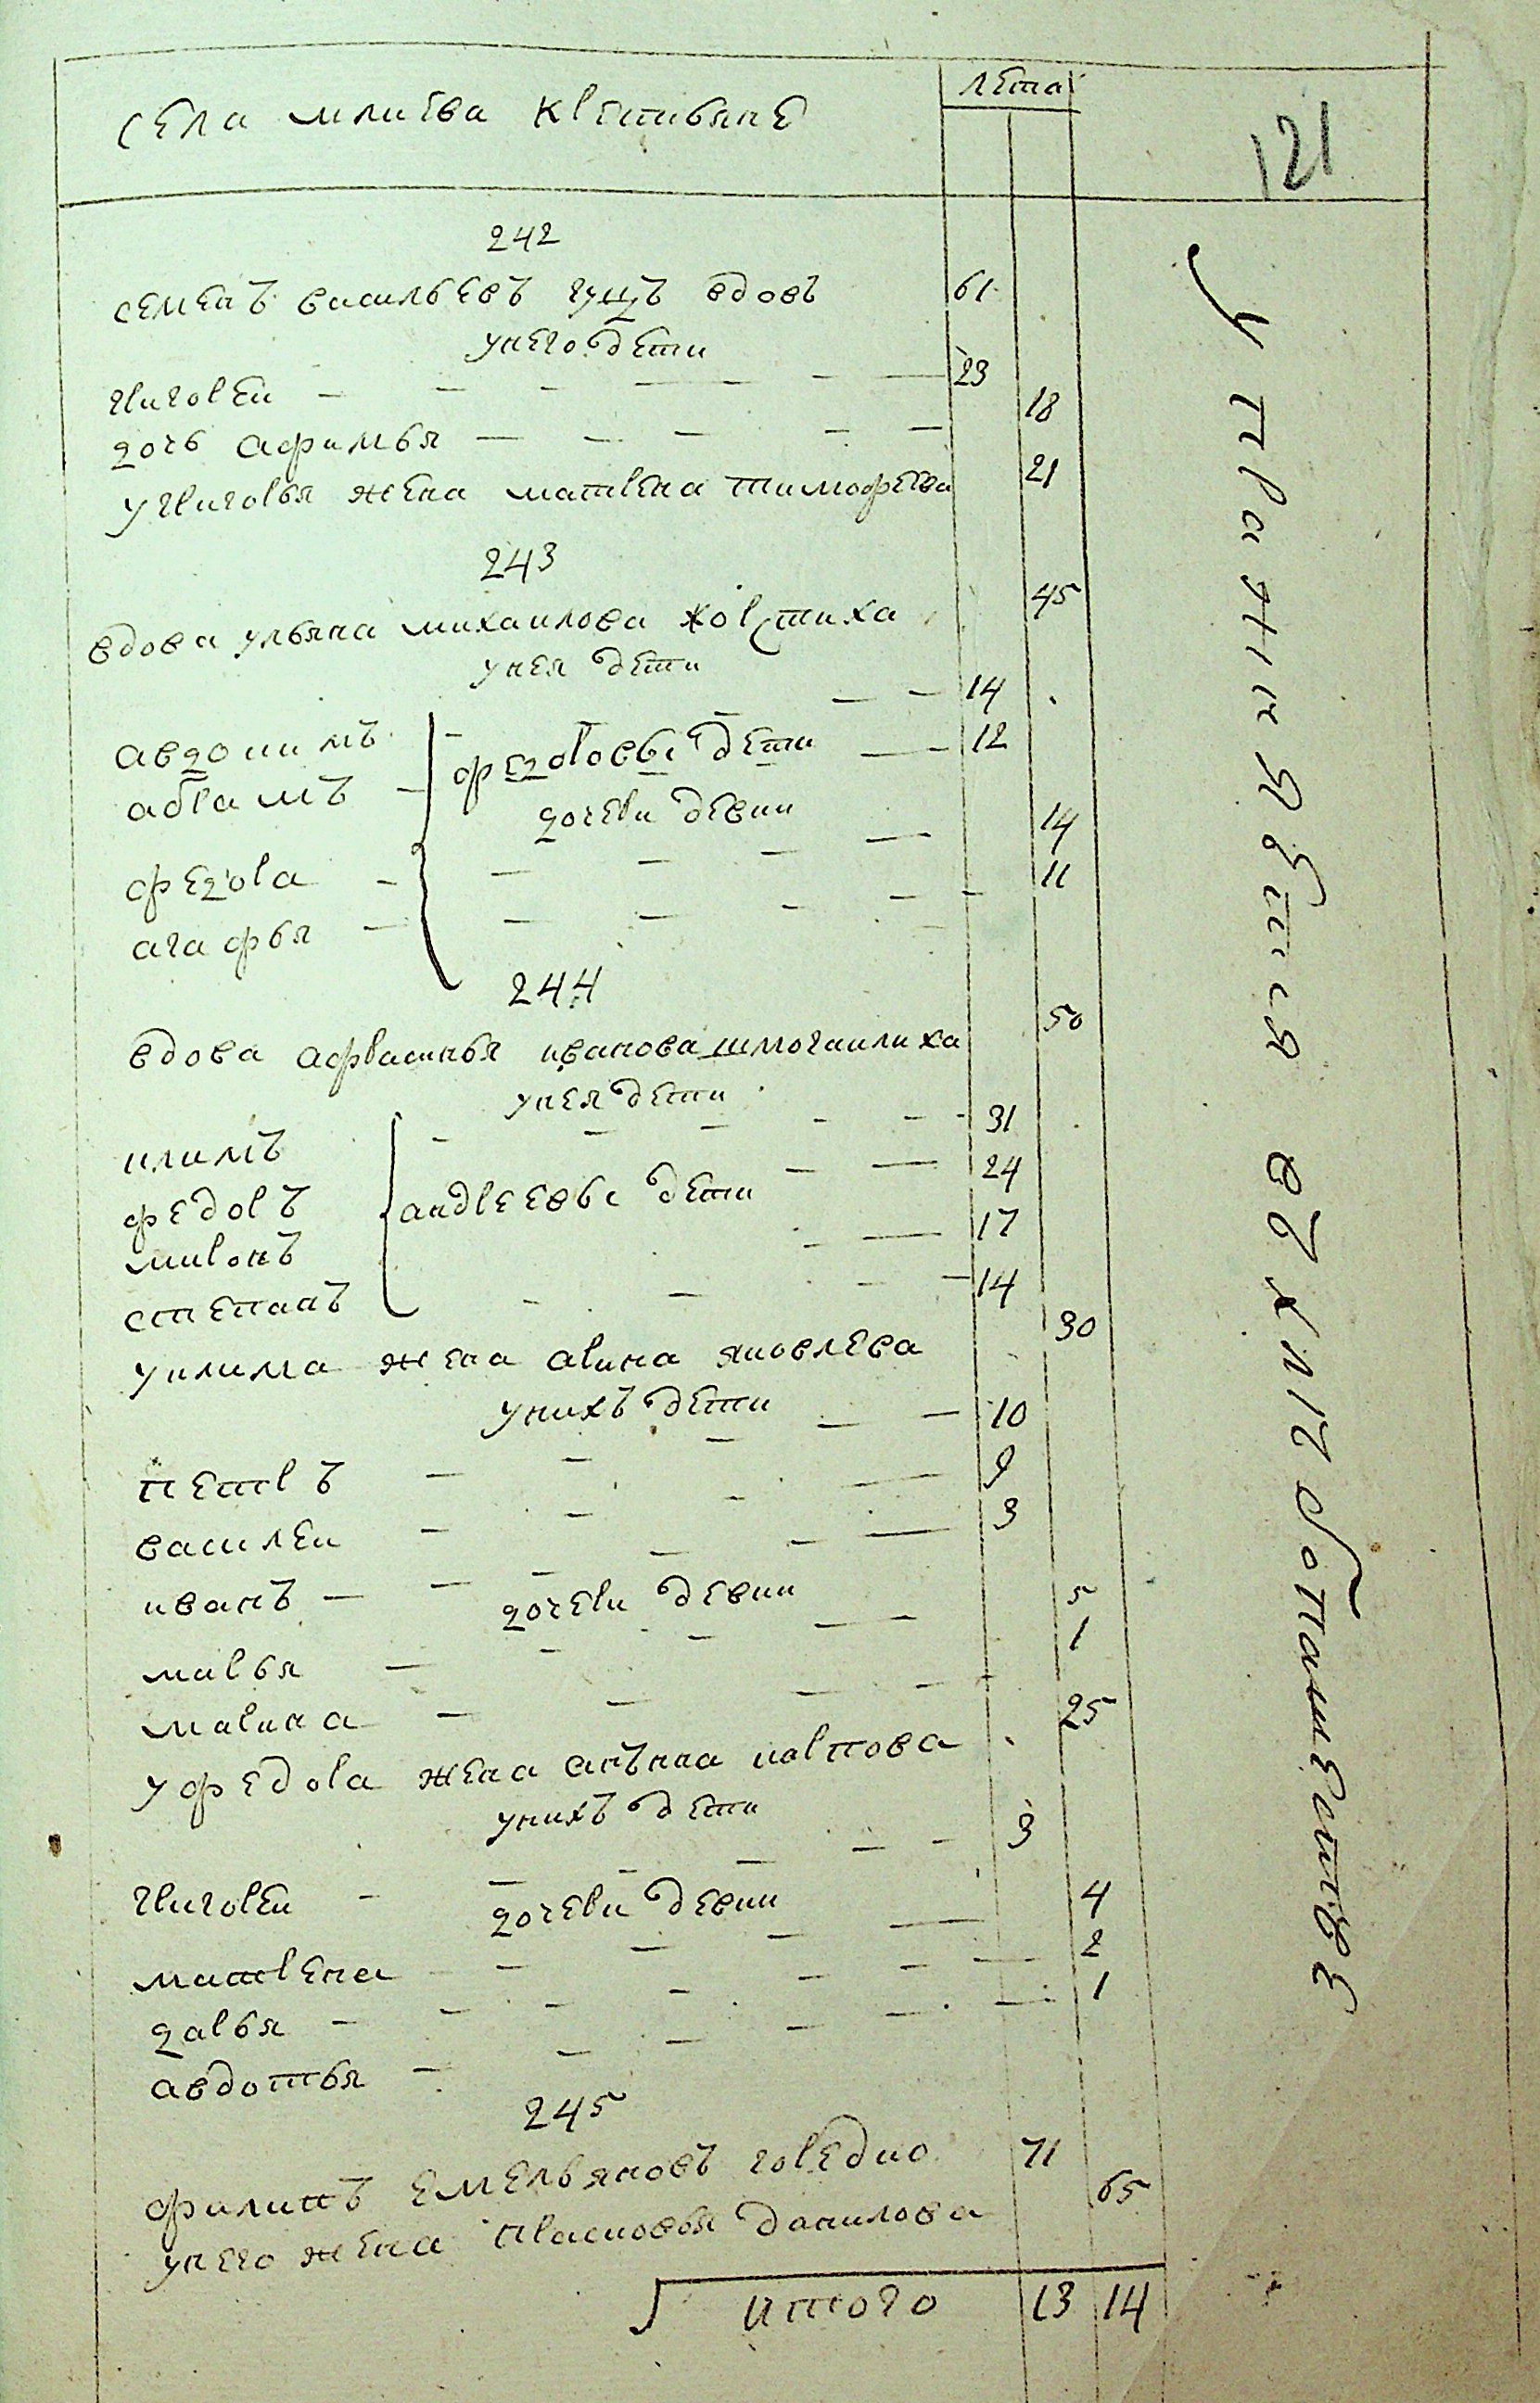 села млиева крестьяне
лета
121
242
семенъ васильевъ гуцъ вдовъ 61
у него дети
григореи 23
дочь афимья 18
у григорья жена матрена тимофеева 21
243
вдова ульяна михаилова 45
у нея дети
авдокимъ 14
абрамъ 12
федоровы дети
дочери девки
федора 14
агафья 11
244
вдова афрасинья иванова шмогаилиха 50
у нея дети
климъ 31
федоръ 24
андреевы дети
миронъ 17
степанъ 14
у клима жена арина яковлева 30
у нихъ дети
петръ 10
василеи 9
иванъ 3
дочери девки
марья 5
марина 1
у федора жена анънна карпова 25
у нихъ дети
григореи 3
дочери девки
матрена 4
дарья 2
авдотья 1
245
филипъ емельяновъ 71
у него жена прасковья данилова 65
итого 13 14
упражняется въ хлебопашестве